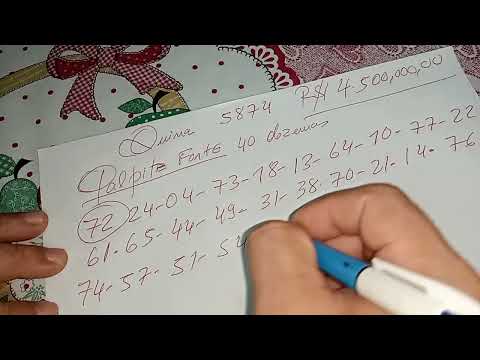 Quina 5874 R$ 4.500,000,00
Palpite Forte 40 dezenas
72 24-04-73-18-13-64-10-77-22
61-65-44-49-31-38-70-21-14-76
74-57-51-54